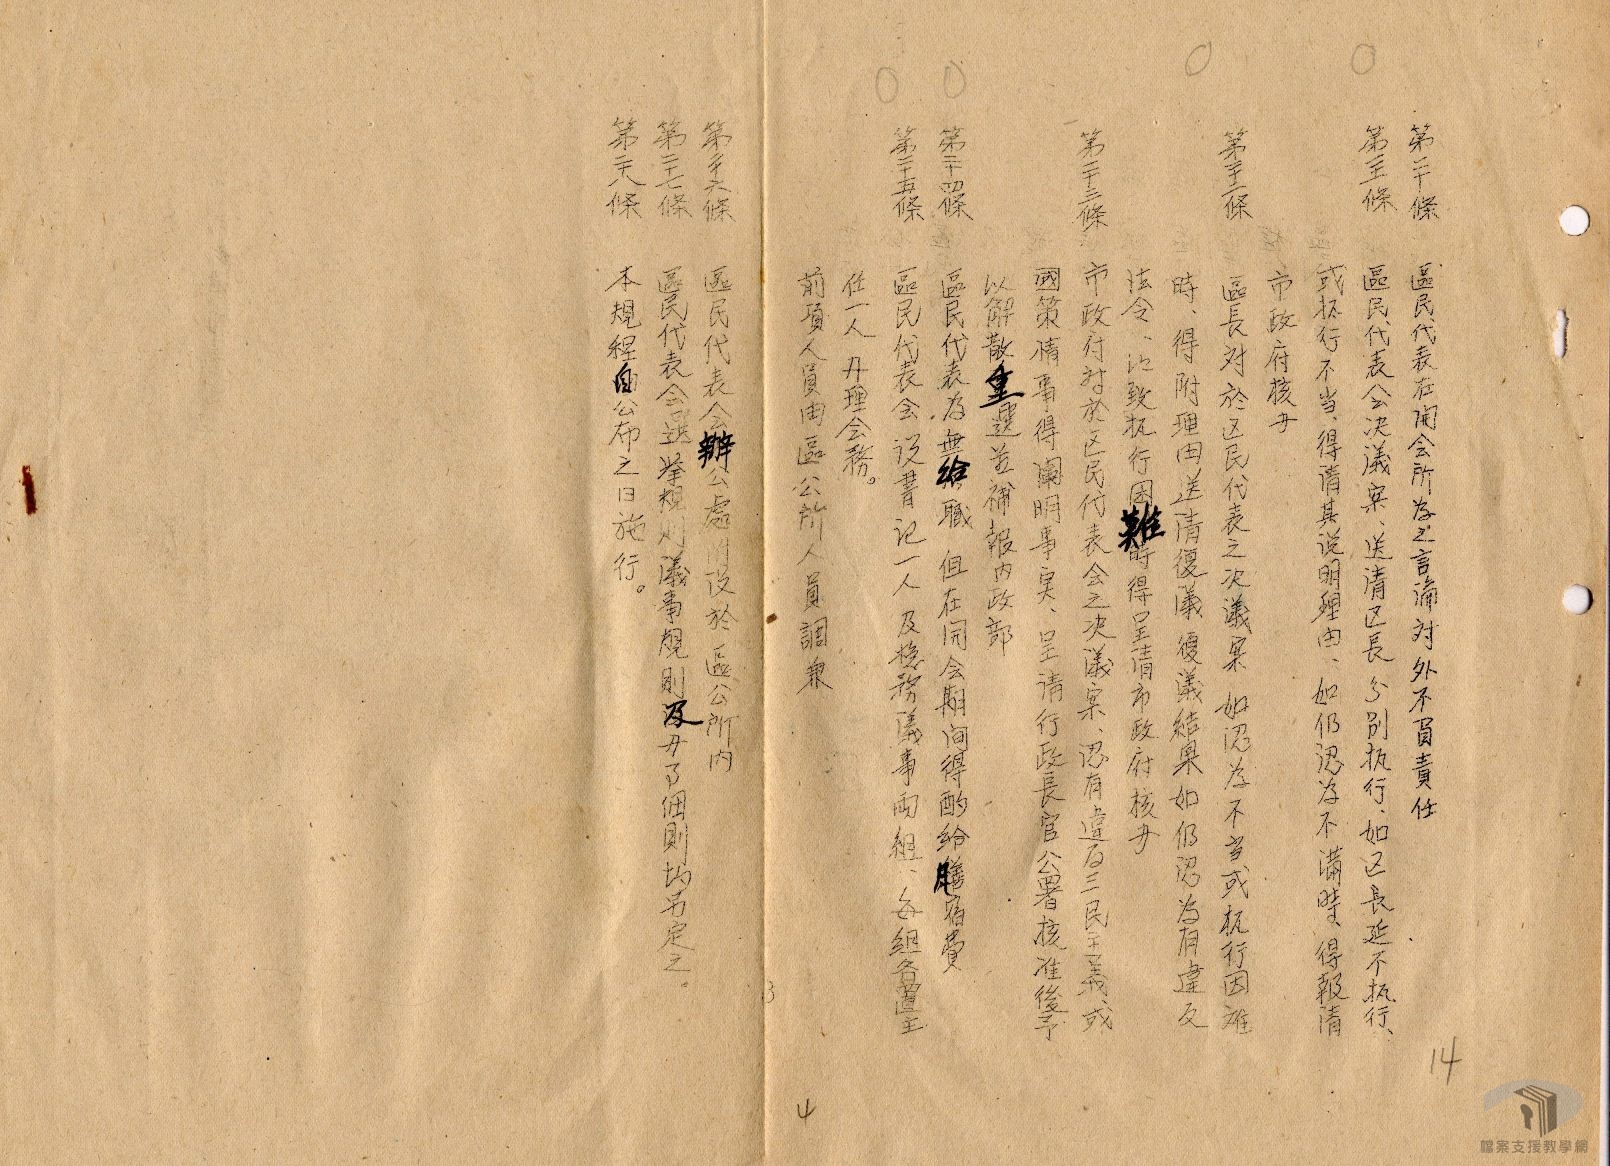 第二十條　區民代表在開会所為之言論对外不負責任
第二十一條　區民代表会决議案、送請区長分別执行、如区長延不执行、
或执行不当、得請其说明理由、如仍認为不滿時、得報請
市政府核办
第二十二條　區長对於区民代表之决議案如認为不当或执行困难
時、得附理由送請復議復議結果如仍認為有違反
法令、以致执行困難時得呈請市政府核办
第二十三條　市政府对於区民代表会之决議案、認有違反三民主義、或
國策情事得闡明事实、呈请行政長官公署核准後予
以解散重選並補報内政部
第二十四條　區民代表為無給職但在開会期间得酌給膳宿費
第二十五條　區民代表会设書记一人及總務議事両組、每組各置主
任一人办理会務。
前項人員由區公所人員調兼
第二十六條　區民代表会辦公處附设於區公所内
第二十七條　區民代表会選举規則議事規則及办事细則均另定之。
第二十八條　本規程自公布之日施行。
14
3
4
檔案支援教學網